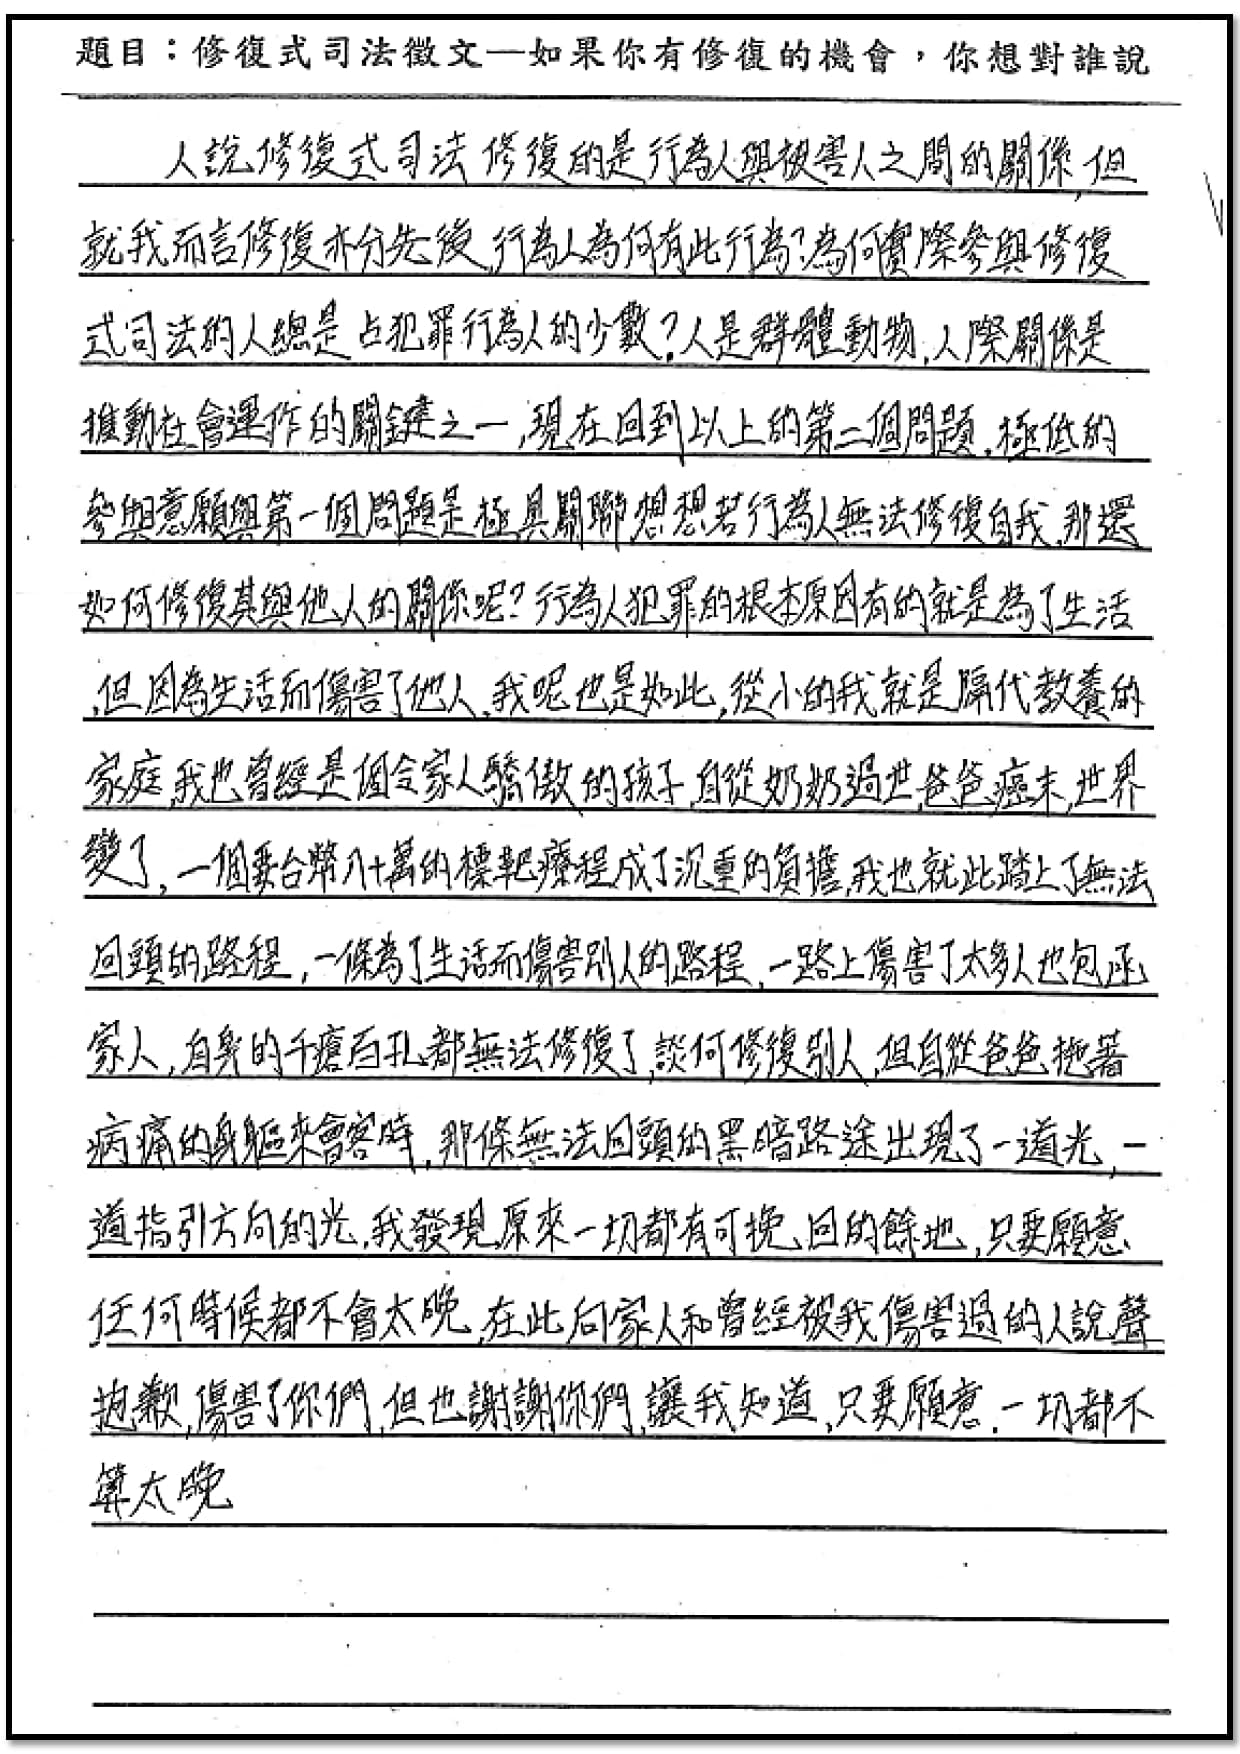 題目：修復式司法徵文—如果你有修復的機會，你想對誰說
人說修復式司法修復的是行為人與被害人之間的關係,但
就我而言修復亦分先後,行為人為何有此行為?為何實際參與修復
式司法的人總是占犯罪行為人的少數?人是群體動物,人際關係是
推動社會運作的關鍵之一,現在回到以上的第二個問題.極低的
參與意願與第一個問題是極具關聯,想想若行為人無法修復自我,那還
如何修復其與他人的關係呢?行為人犯罪的根本原因有的就是為了生活
,但因為生活而傷害了他人,我呢也是如此,從小的我就是隔代教養的
家庭,我也曾經是個令家人驕傲的孩子,自從奶奶過世,爸爸癌末,世界
變了,一個要台幣八十萬的標靶療程成了沉重的負擔,我也就此踏上了無法
回頭的路程,一條為了生活而傷害別人的路程,一路上傷害了太多人也包函
家人,自身的千瘡百孔都無法修復了,談何修復別人,但自從爸爸拖著
病痛的身軀來會客時,那條無法回頭的黑暗路途出現了一道光,一
道指引方向的光,我發現原來一切都有可挽回的餘地,只要願意
任何時候都不會太晚,在此向家人和曾經被我傷害過的人說聲
抱歉,傷害了你們,但也謝謝你們,讓我知道,只要願意.一切都不
算太晚